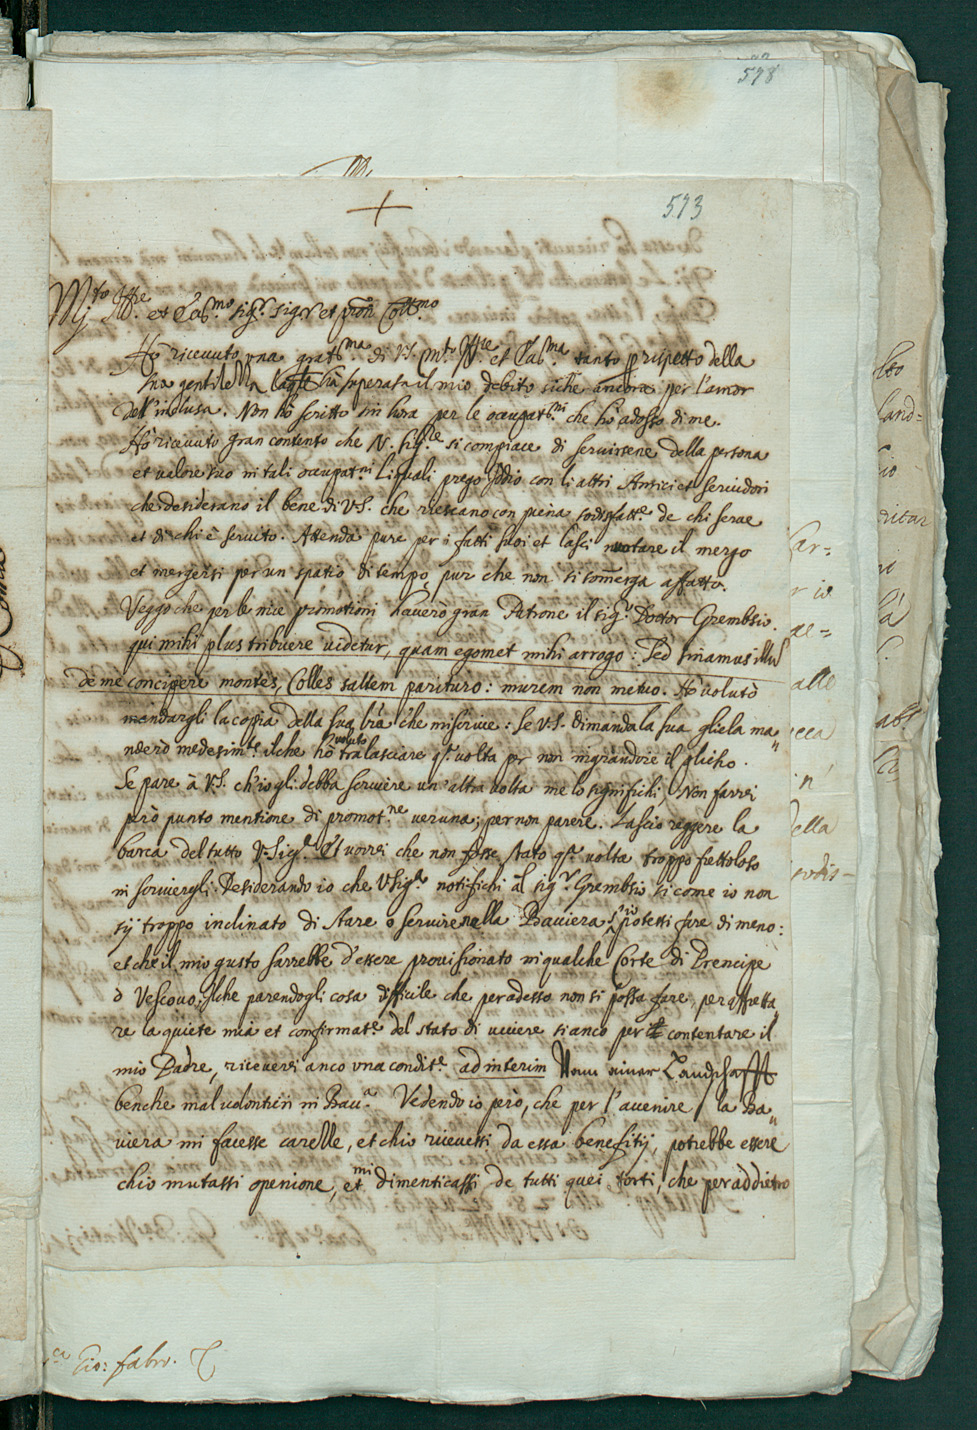 578
573
Mto Illre et Ecc.mo sig.r sig.r et pron Coll.mo
Hò riceuuto una grat.ma di V.S. mto Illre et Ecc.ma tanto per rispetto della
sua gentilezza laqle hà superata il mio debito, sicħe ancora per l'amor
dell'inclusa. Non hò scritto sin hora per le occupat.ni che hò adosso di me.
Hò riceuuto gran contento che V. Sig.ie si compiace di seruirsene della persona
et valore suo in tali occupat.ni Liquali prego Iddio con li altri Amici et seruidori
che desiderano il bene di V.S. che riescano con piena sodisfatt.e de chi serue
et di chi è seruito. Attenda pure per i fatti suoi et lasci nuotare il mergo
et mergersi per un spatio di tempo, pur che non si som̃erga affatto.
Veggo che per le mie promotioni hauerò gran Patrone il sig.r Doctor Grembsio.
qui mihi plus tribuere uidetur, quam egomet mihi arrogo: Sed sinamus illũ
de me concipere montes, Colles saltem parituro: murem non metuo. Hò uoluto
mandargli la copia della sua lrã che mi scriue: se V.S. dimanda la sua gliela ma„
nderò medesim.te ilche hò uoluto tralasciare q.a uolta per non ingrandire il plicho.
Se pare à V.S. ch'io gli debba scriuere un'altra uolta me lo significhi, Non farrei
però punto mentione di promot.ne ueruna; per non parere. Lascio reggere la
barca del tutto V. Sig.ie Et uorrei che non fosse stato q.a uolta troppo frettoloso
in scriuergli. Desiderando io che V Sig.ie notifichi al sig.r Grembsio si come io non
sij troppo inclinato di stare o seruire nella Bauiera s'io potessi fare di meno:
et che il mio gusto sarrebbe d'essere prouisionato in qualche Corte di Prencipe
ò Vescouo, Ilche parendogli cosa difficile che per adesso non si possa fare, per affretta„
re la quiete mia et confirmat.e del stato di uiuere si anco per contentare il
mio Padre, riceuerei anco una condit.e ad interim Von einer Landschafft
benche mal uolontieri in Bau.a Vedendo io però, che per l'auenire la Ba„
uiera mi facesse carelle, et chio riceuessi da essa benefitij, potrebbe essere
chio mutassi openione, et mi dimenticassi de tutti quei torti, che per addietro
Gio: fabro.